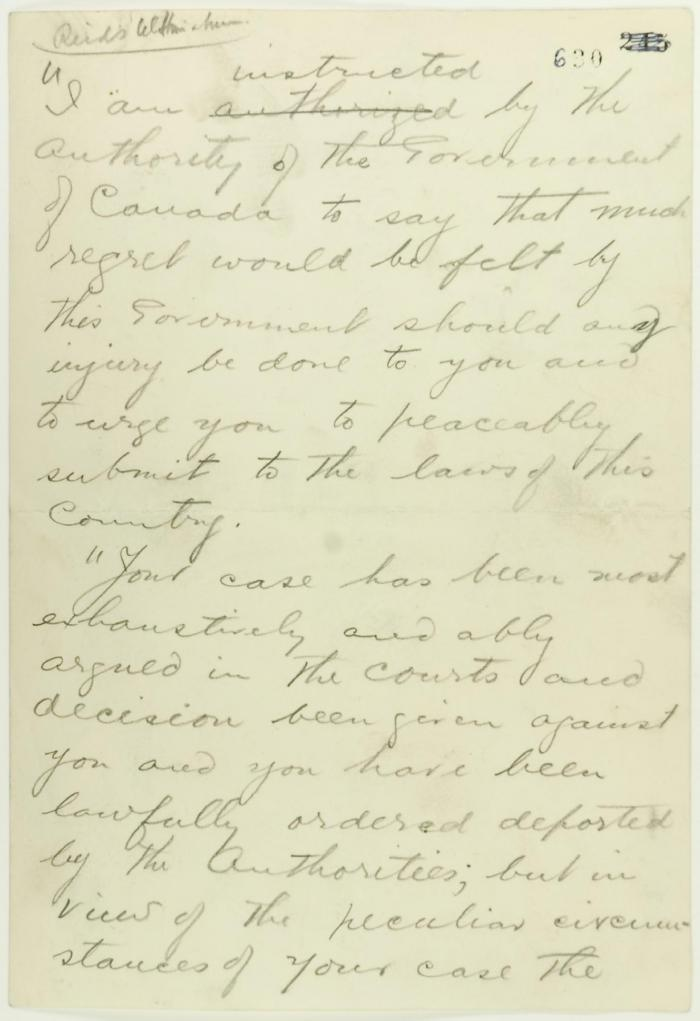 Reid's Ultimatum.
630 245
instructed
"I am authorized by the
Authority of the Government
of Canada to say that much
regret would be felt by
this Government should any
injury be done to you and
to urge you to peaceably
submit to the laws of this
Country.
"Your case has been most
exhaustively and ably
argued in the Courts and
decision been given against
you and you have been
lawfully ordered deported
by the Authorities; but in
view of the peculiar circum-
stances of your case the